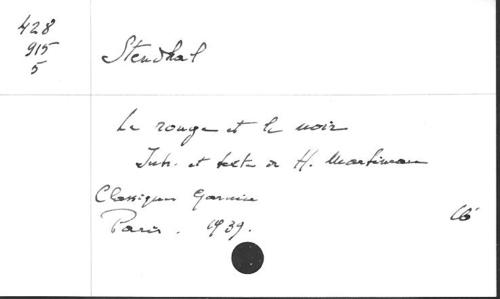 428
915
5
Stendhal
Le rouge et le noir
Intr. et texte de H. Martineau
Classiques Garnier
Paris. 1939.